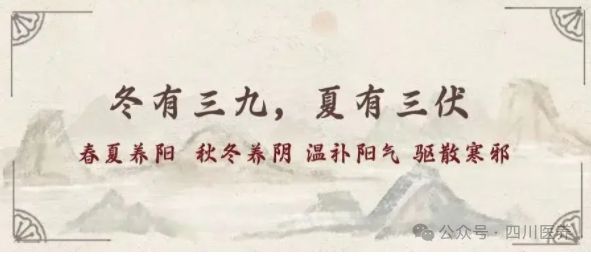 冬有三九，夏有三伏
春夏养阳 秋冬养阴 温补阳气 驱散寒邪
公众号 · 四川医养